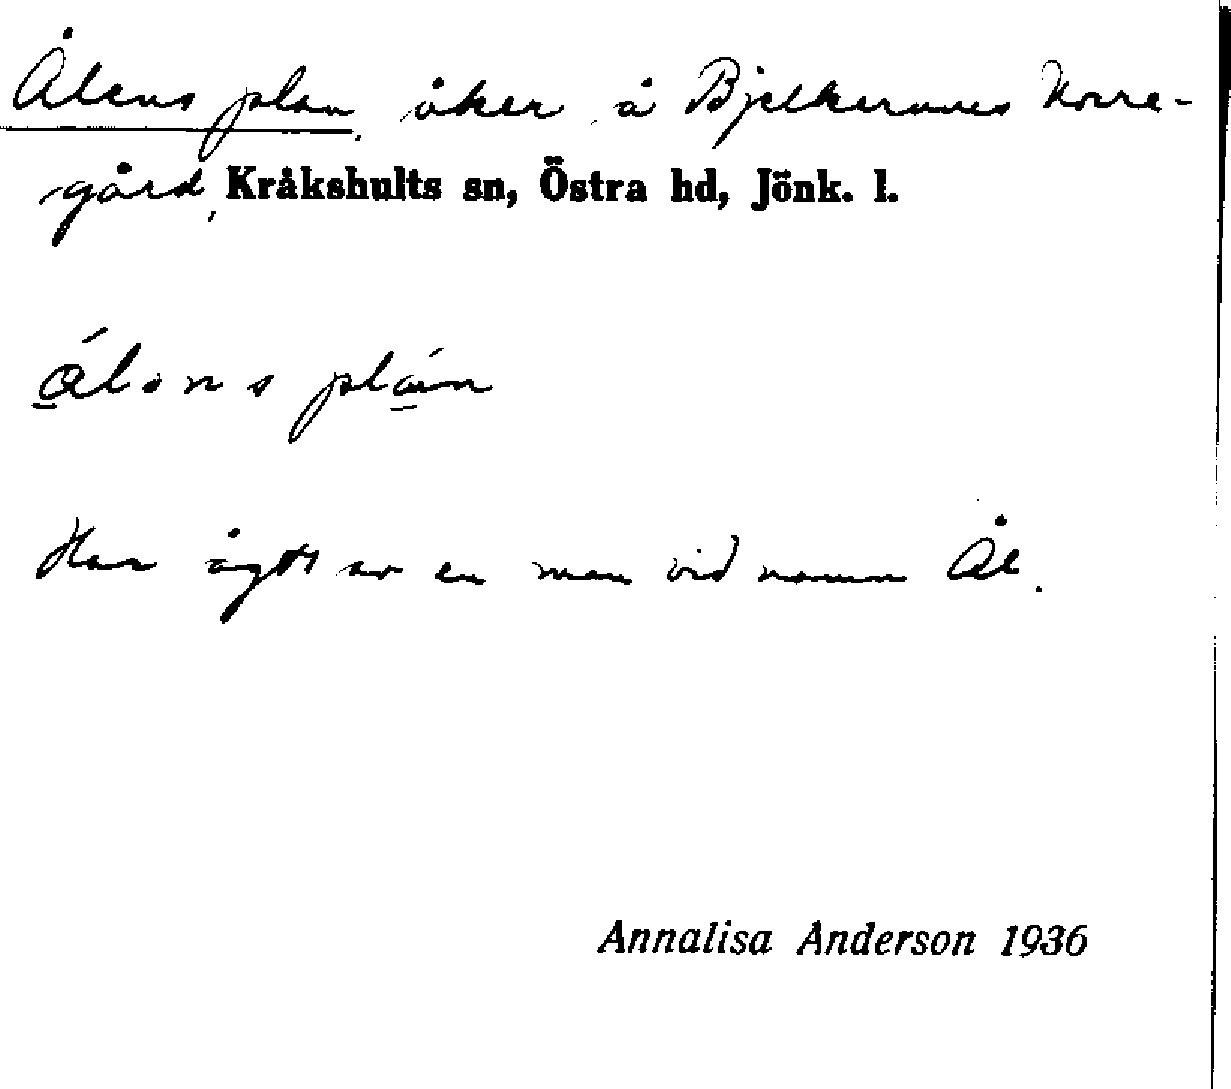 Ålens plan, åker å Bjelkernes Norre-
gård, Kråkshults sn, Östra hd, Jönk. l.
á̲lens plá̲n
Har ägts av en man vid namn Ål.
Annalisa Anderson 1936